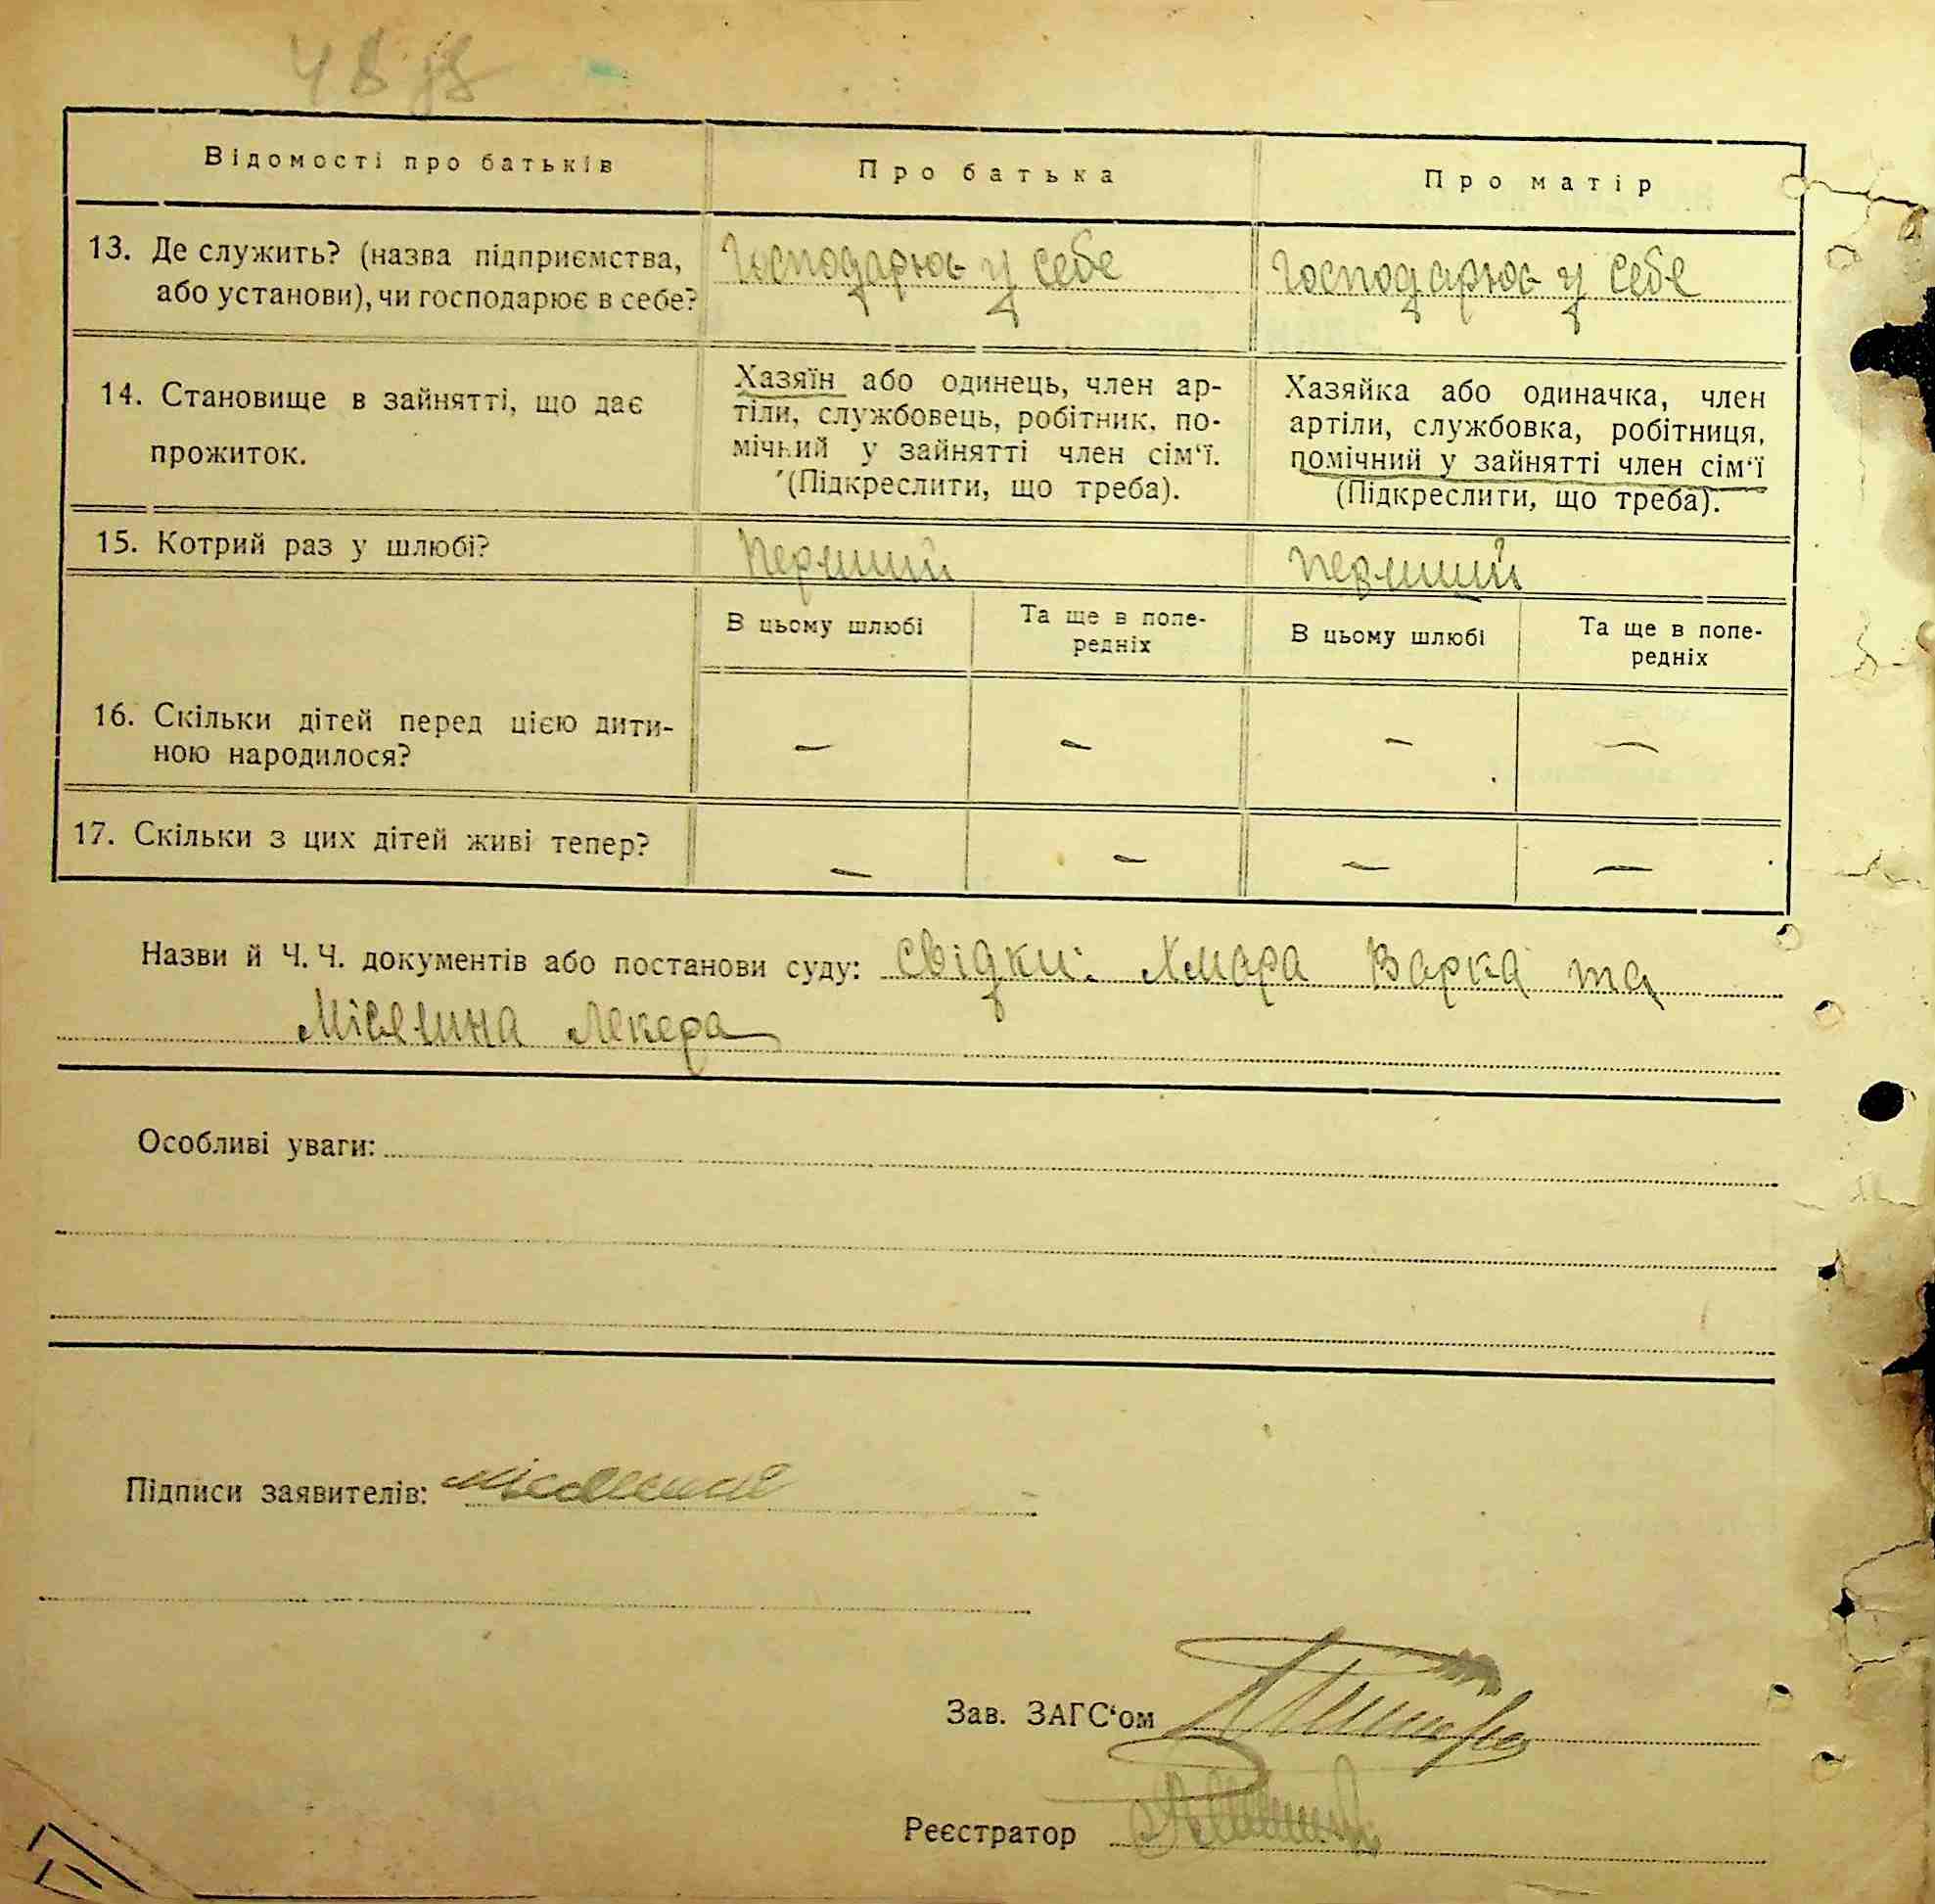 48 зв
Відомості про батьків
Про батька
Про матір
13. Де служить? (назва підприємства,
або установи), чи господарює в себе?
Господарює у себе
Господарює у себе
14. Становище в зайнятті, що дає
прожиток.
Хазяїн або одинець, член ар-
тіли, службовець, робітник, по-
мічний у зайнятті член сім'ї.
(Підкреслити, що треба).
Хазяйка або одиначка, член
артіли, службовка, робітниця,
помічний у зайнятті член сім'ї
(Підкреслити, що треба).
15. Котрий раз у шлюбі?
перший
перший
В цьому шлюбі
Та ще в попе-
редніх
В цьому шлюбі
Та ще в попе-
редніх
16. Скільки дітей перед цією дити-
ною народилося?
— — — —
17. Скільки з цих дітей живі тепер?
— — — —
Назви й Ч. Ч. документів або постанови суду: свідки: Хмара Варка та
Місялина
Особливі уваги:
Підписи заявителів:
Зав. ЗАГС'ом
Реєстратор